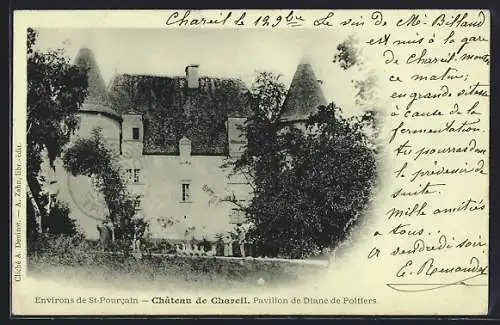 Chareil le 12 9bre Le vin de Mr Billaud
est mis à la gare
de Chareil, montes
ce matin;
en grande vitesse
à cause de la
fermentation.
Tu pourras donc
le prévenir de
suite.
Mille amitiés
à tous.
à vendredi soir
E. Romandet
Cliché A. Deninot. — A. Zahn, libr.-édit.
Environs de St-Pourçain — Château de Chareil. Pavillon de Diane de Poitiers